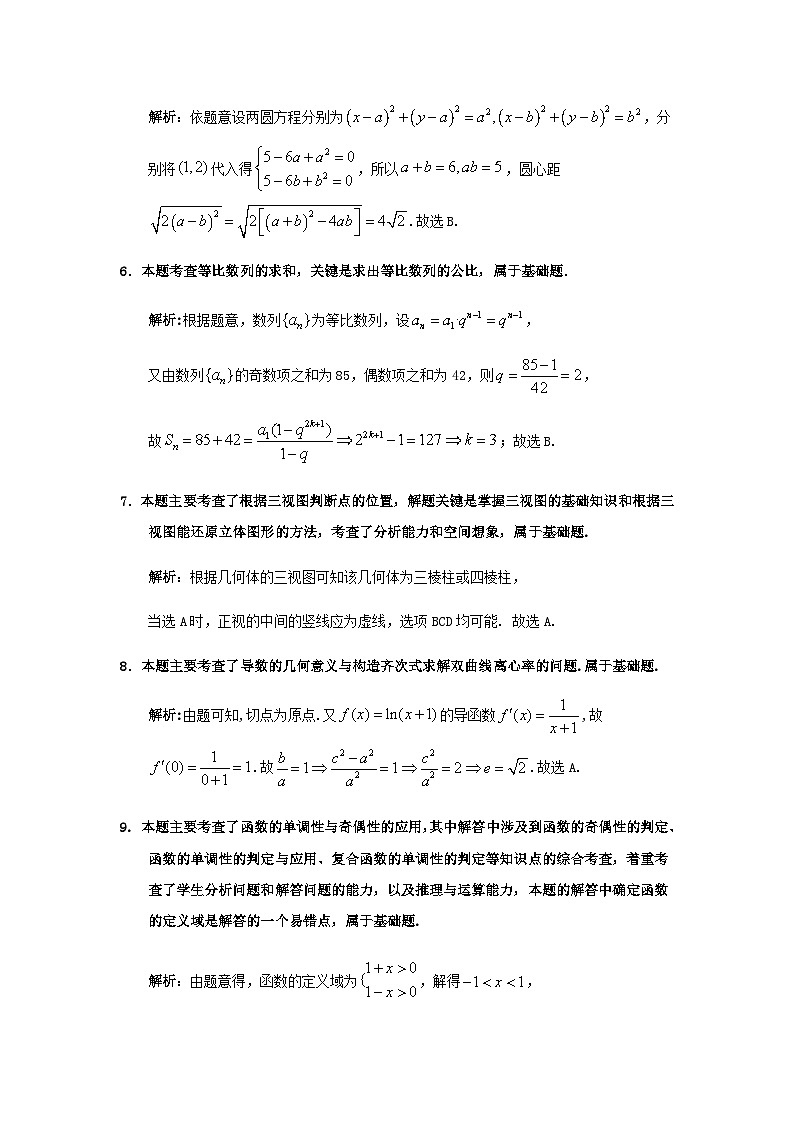 解析：依题意设两圆方程分别为(x−a)²+(y−a)²=a²,(x−b)²+(y−b)²=b²，分
别将(1,2)代入得{5−6a+a²=0 5−6b+b²=0，所以a+b=6,ab=5，圆心距
√(2(a−b)²)=√(2[(a+b)²−4ab])=4√2.故选B.
6．本题考查等比数列的求和，关键是求出等比数列的公比，属于基础题.
解析:根据题意，数列{aₙ}为等比数列，设aₙ=a₁·qⁿ⁻¹=qⁿ⁻¹，
又由数列{aₙ}的奇数项之和为85，偶数项之和为42，则q=(85−1)/42=2，
故Sₙ=85+42=a₁(1−q^(2k+1))/(1−q)⇒2^(2k+1)−1=127⇒k=3；故选B.
7．本题主要考查了根据三视图判断点的位置，解题关键是掌握三视图的基础知识和根据三
视图能还原立体图形的方法，考查了分析能力和空间想象，属于基础题.
解析：根据几何体的三视图可知该几何体为三棱柱或四棱柱，
当选A时，正视的中间的竖线应为虚线，选项BCD均可能. 故选A.
8．本题主要考查了导数的几何意义与构造齐次式求解双曲线离心率的问题.属于基础题.
解析:由题可知,切点为原点.又f(x)=ln(x+1)的导函数f′(x)=1/(x+1),故
f′(0)=1/(0+1)=1.故b/a=1⇒(c²−a²)/a²=1⇒c²/a²=2⇒e=√2.故选A.
9．本题主要考查了函数的单调性与奇偶性的应用,其中解答中涉及到函数的奇偶性的判定、
函数的单调性的判定与应用、复合函数的单调性的判定等知识点的综合考查，着重考
查了学生分析问题和解答问题的能力，以及推理与运算能力，本题的解答中确定函数
的定义域是解答的一个易错点，属于基础题.
解析：由题意得，函数的定义域为{1+x>0 1−x>0，解得−1<x<1，